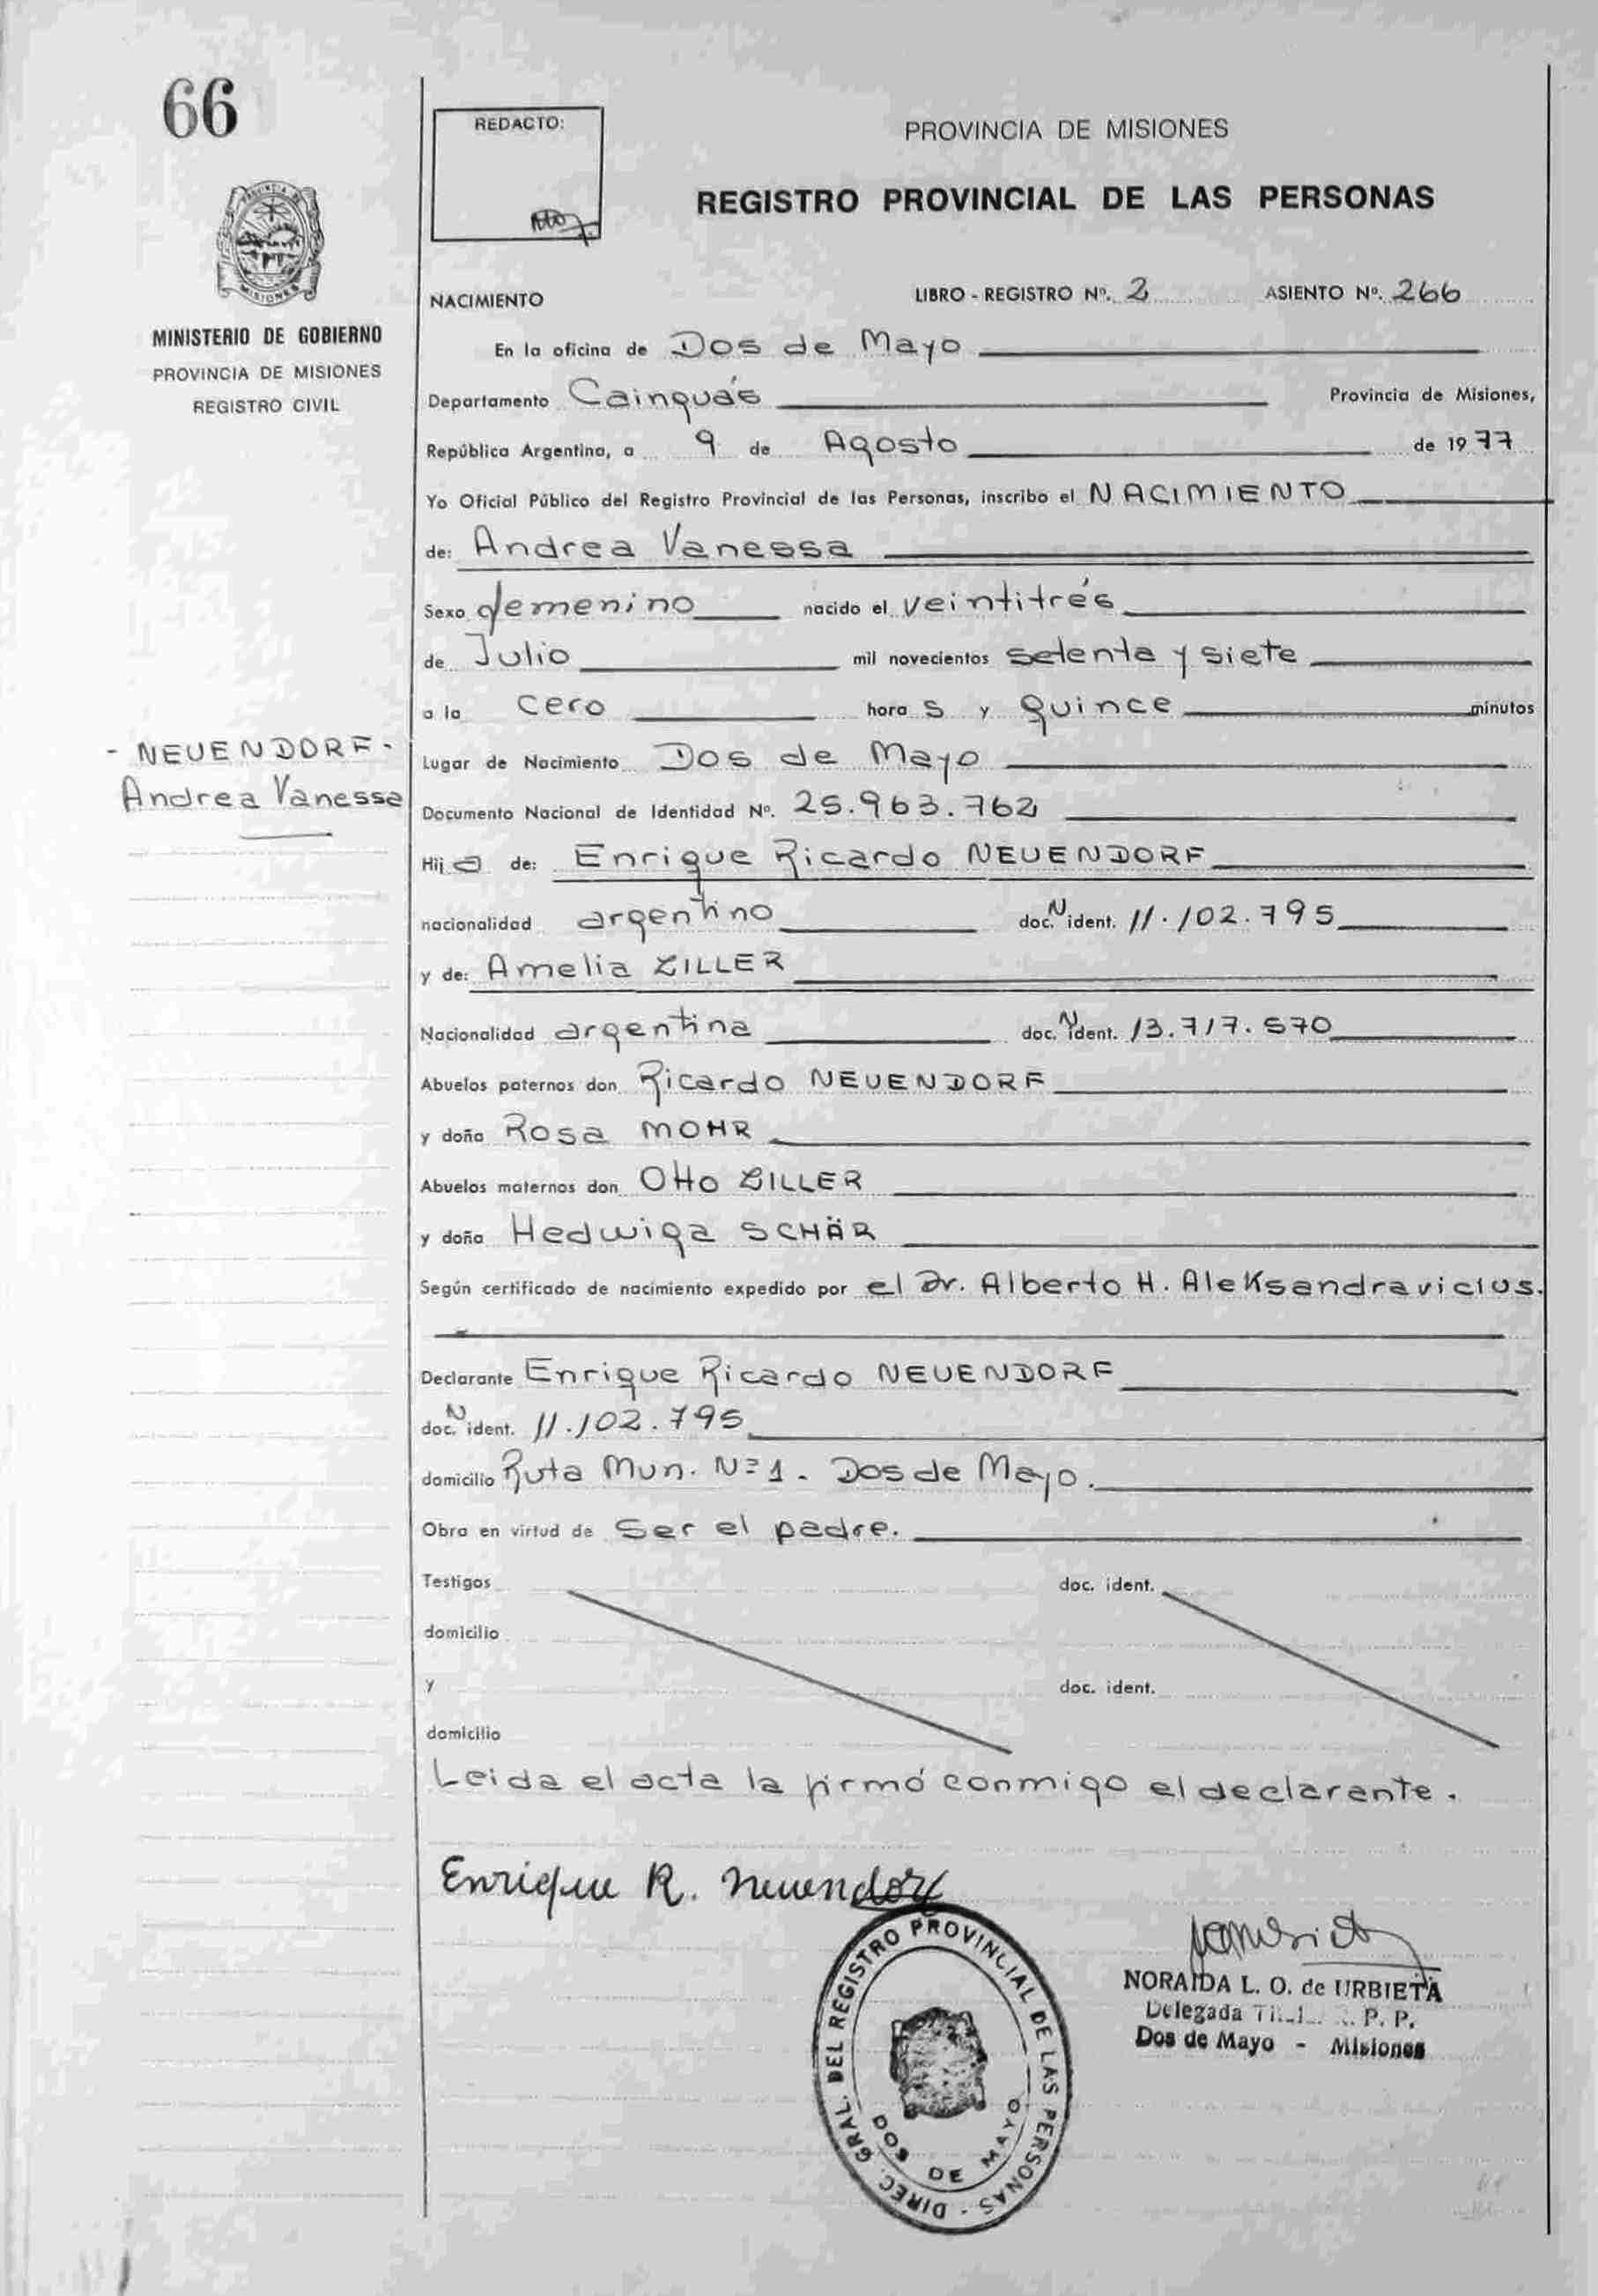 66
REDACTO:
PROVINCIA DE MISIONES
REGISTRO PROVINCIAL DE LAS PERSONAS
MISIONES
MINISTERIO DE GOBIERNO
PROVINCIA DE MISIONES
REGISTRO CIVIL
NACIMIENTO LIBRO - REGISTRO Nº. 2 ASIENTO Nº. 266
En la oficina de Dos de Mayo
Departamento Cainguás Provincia de Misiones,
República Argentina, a 9 de Agosto de 1977
Yo Oficial Público del Registro Provincial de las Personas, inscribo el NACIMIENTO
de: Andrea Vanessa
Sexo femenino nacido el veintitrés
de Julio mil novecientos setenta y siete
a la cero hora s y quince minutos
- NEUENDORF -
Andrea Vanessa
Lugar de Nacimiento Dos de Mayo
Documento Nacional de Identidad Nº. 25.963.762
Hij a de: Enrique Ricardo NEUENDORF
nacionalidad argentino doc. N ident. 11.102.795
y de: Amelia ZILLER
Nacionalidad argentina doc. N ident. 13.717.570
Abuelos paternos don Ricardo NEUENDORF
y doña Rosa MOHR
Abuelos maternos don Otto ZILLER
y doña Hedwiga SCHÄR
Según certificado de nacimiento expedido por el Dr. Alberto H. Aleksandravicius.
Declarante Enrique Ricardo NEUENDORF
doc. N ident. 11.102.795
domicilio Ruta Mun. Nº 1 - Dos de Mayo.
Obra en virtud de Ser el padre.
Testigos doc. ident.
domicilio
y doc. ident.
domicilio
Leida el acta la firmó conmigo el declarante.
Enrique R. Neuendorf
DIREC. GRAL. DEL REGISTRO PROVINCIAL DE LAS PERSONAS -
DOS DE MAYO
NORAIDA L. O. de URBIETA
Delegada P. P.
Dos de Mayo - Misiones